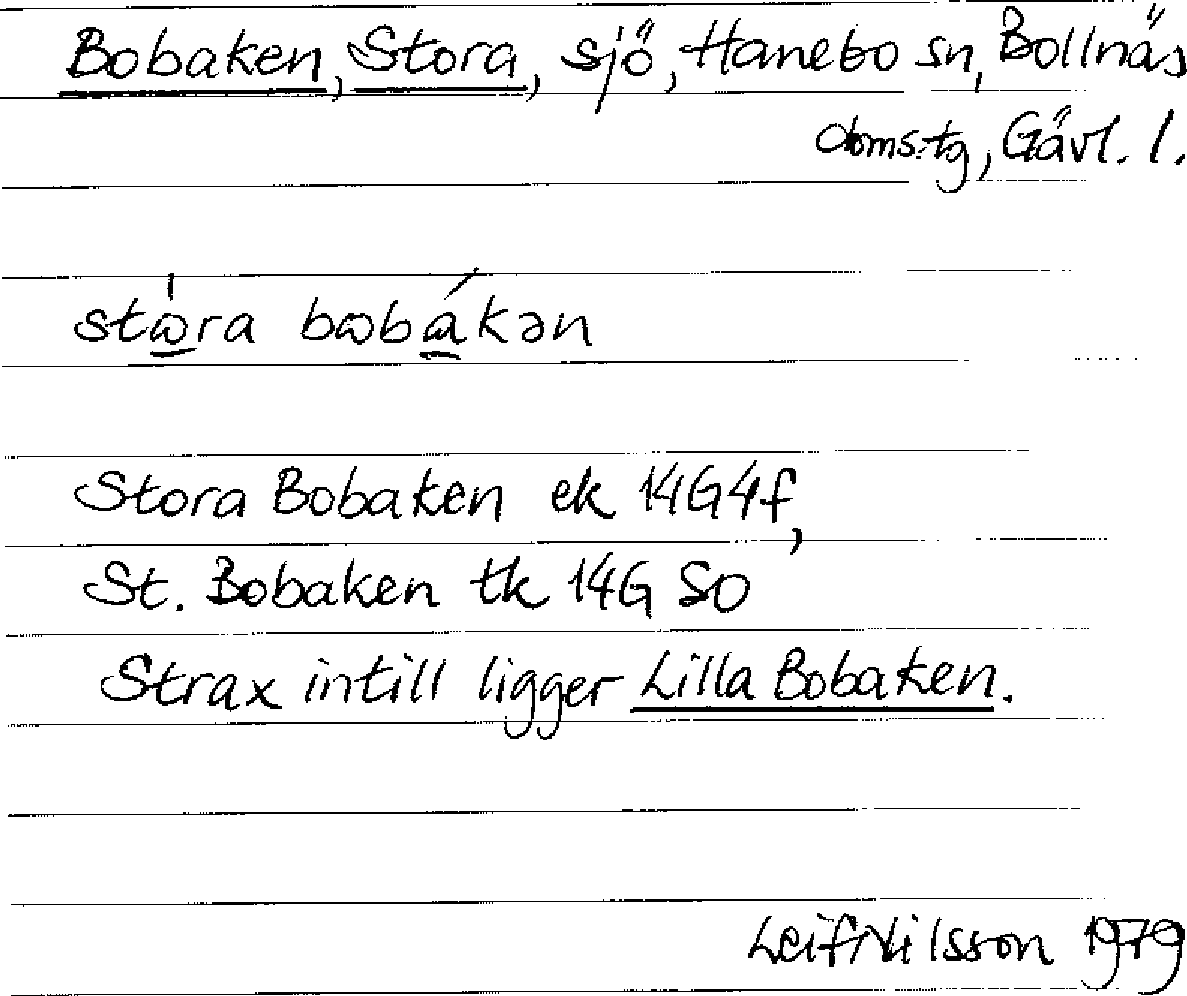 Bobaken, Stora, sjö, Hanebo sn, Bollnäs
domstg, Gävl. l.
stὼ̲ra bωbá̲kən
Stora Bobaken ek 14G4f,
St. Bobaken tk 14G SO
Strax intill ligger Lilla Bobaken.
Leif Nilsson 1979